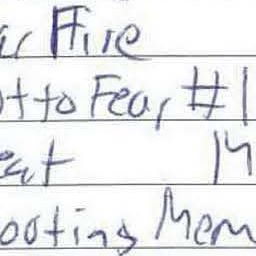 ar Fire
ot to Fear #1
eat 14
ooting Mem